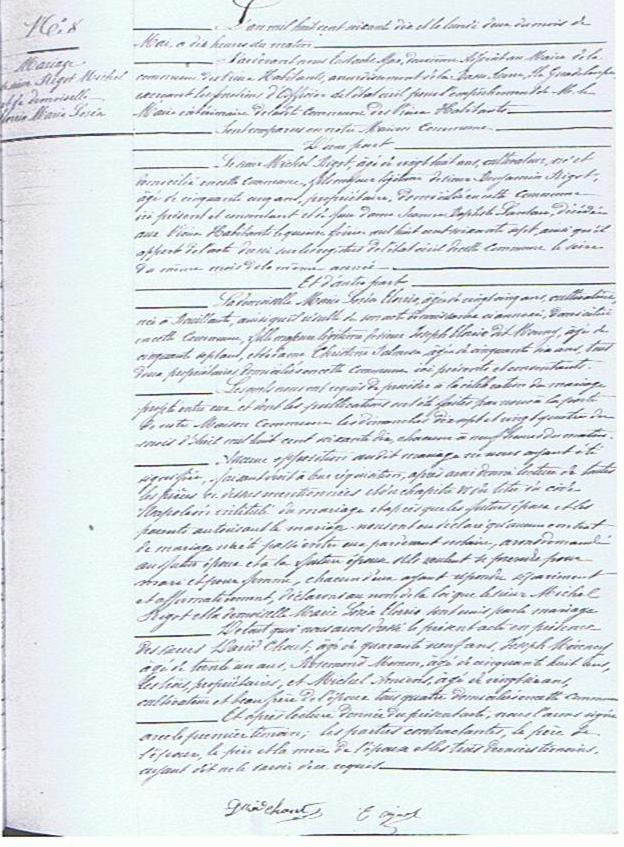 N° 8
Mariage
Rigot Michel
demoiselle
Marie Loria
L'an mil huit cent soixante dix et le lundi deux du mois de
Mai, à dix heures du matin
Pardevant nous Mae, deuxième Adjoint au Maire de la
commune des Vieux Habitants, arrondissement de la Basse Terre, Ile Guadeloupe
exerçant les fonctions d'Officier de l'état civil pour l'empêchement de M. le
Maire titulaire de ladite commune des Vieux Habitants
Sont comparus en notre Maison Commune
D'une part
Le sieur Michel Rigot, âgé de vingt huit ans, cultivateur, né et
domicilié en cette Commune, fils majeur légitime de sieur Benjamin Rigot,
âgé de cinquante cinq ans, propriétaire, domicilié en cette Commune
ici présent et consentant et de feue dame Jeanne Baptiste décédée
aux Vieux Habitants le quinze février mil huit cent soixante sept, ainsi qu'il
appert de l'acte dressé sur les registres de l'état civil de cette commune le seize
du même mois de la même année
Et d'autre part
La demoiselle Marie Loria Elorie, âgée de vingt cinq ans, cultivatrice,
née à Bouillante, ainsi qu'il résulte de son acte de naissance ci annexé, domiciliée
en cette Commune, fille majeure légitime de sieur Joseph Elorie dit âgé de
cinquante sept ans, et de dame Christine âgée de cinquante six ans, tous
deux propriétaires domiciliés en cette Commune ici présents et consentants.
Lesquels nous ont requis de procéder à la célébration du mariage
projeté entre eux et dont les publications ont été faites par nous à la porte
de notre Maison Commune les dimanches dix sept et vingt quatre du
mois d'Avril mil huit cent soixante dix, chacun à neuf heures du matin.
Aucune opposition audit mariage ne nous ayant été
signifiée, faisant droit à leur réquisition, après avoir donné lecture de toutes
les pièces ci dessus mentionnées et du chapitre VI du titre du code
Napoléon intitulé du mariage et après que les futurs époux et les
parents autorisant le mariage nous ont déclaré qu'aucun contrat
de mariage n'a été passé entre eux pardevant notaire, avons demandé
au futur époux et à la future épouse s'ils veulent se prendre pour
mari et pour femme, chacun d'eux ayant répondu séparément
et affirmativement, déclarons au nom de la loi que le sieur Michel
Rigot et la demoiselle Marie Loria Elorie sont unis par le mariage
De tout quoi nous avons dressé le présent acte en présence
des sieurs David Chout, âgé de quarante neuf ans, Joseph
âgé de trente un ans, Rosemond âgé de cinquante huit ans,
les trois, propriétaires, et Michel âgé de vingt six ans,
cultivateur et beau frère de l'épouse tous quatre domiciliés en cette commune
Et après lecture donnée du présent acte, nous l'avons signé
avec le premier témoin; les parties contractantes, le père de
l'époux, le père et la mère de l'épouse et les trois derniers témoins,
ayant dit ne le savoir de ce requis